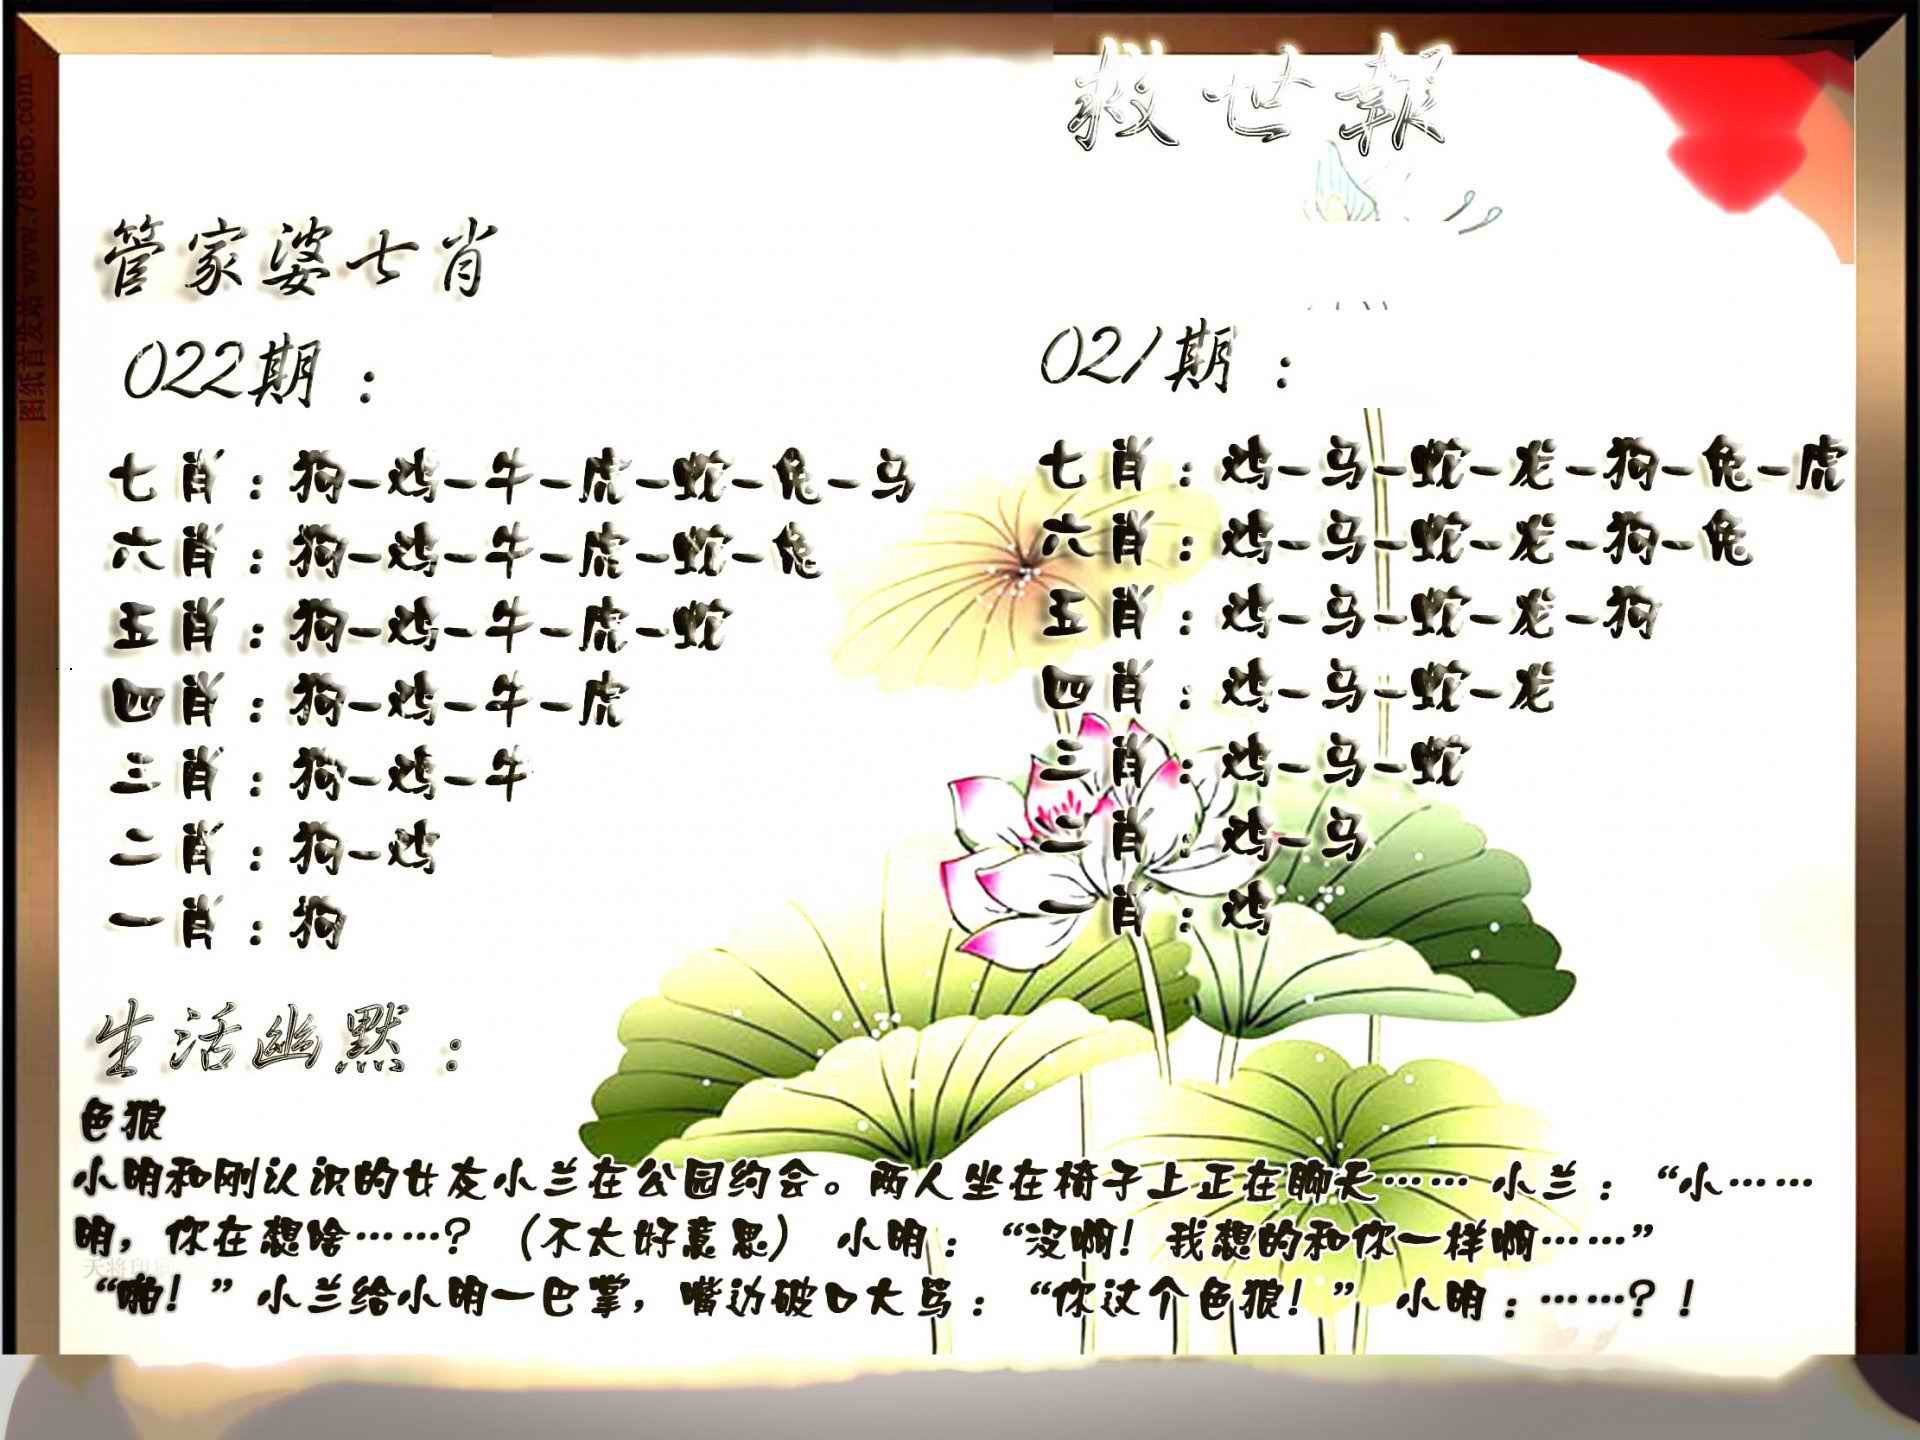 救世報
管家婆七肖
022期：
七肖：狗-鸡-牛-虎-蛇-兔-马
六肖：狗-鸡-牛-虎-蛇-兔
五肖：狗-鸡-牛-虎-蛇
四肖：狗-鸡-牛-虎
三肖：狗-鸡-牛
二肖：狗-鸡
一肖：狗
021期：
七肖：鸡-马-蛇-龙-狗-兔-虎
六肖：鸡-马-蛇-龙-狗-兔
五肖：鸡-马-蛇-龙-狗
四肖：鸡-马-蛇-龙
三肖：鸡-马-蛇
二肖：鸡-马
一肖：鸡
生活幽默：
色狼
小明和刚认识的女友小兰在公园约会。两人坐在椅子上正在聊天…… 小兰：“小……
明，你在想啥……？（不太好意思） 小明：“没啊！我想的和你一样啊……”
“啪！”小兰给小明一巴掌，嘴边破口大骂：“你这个色狼！” 小明：……？！
图纸首发站 www.78866.com